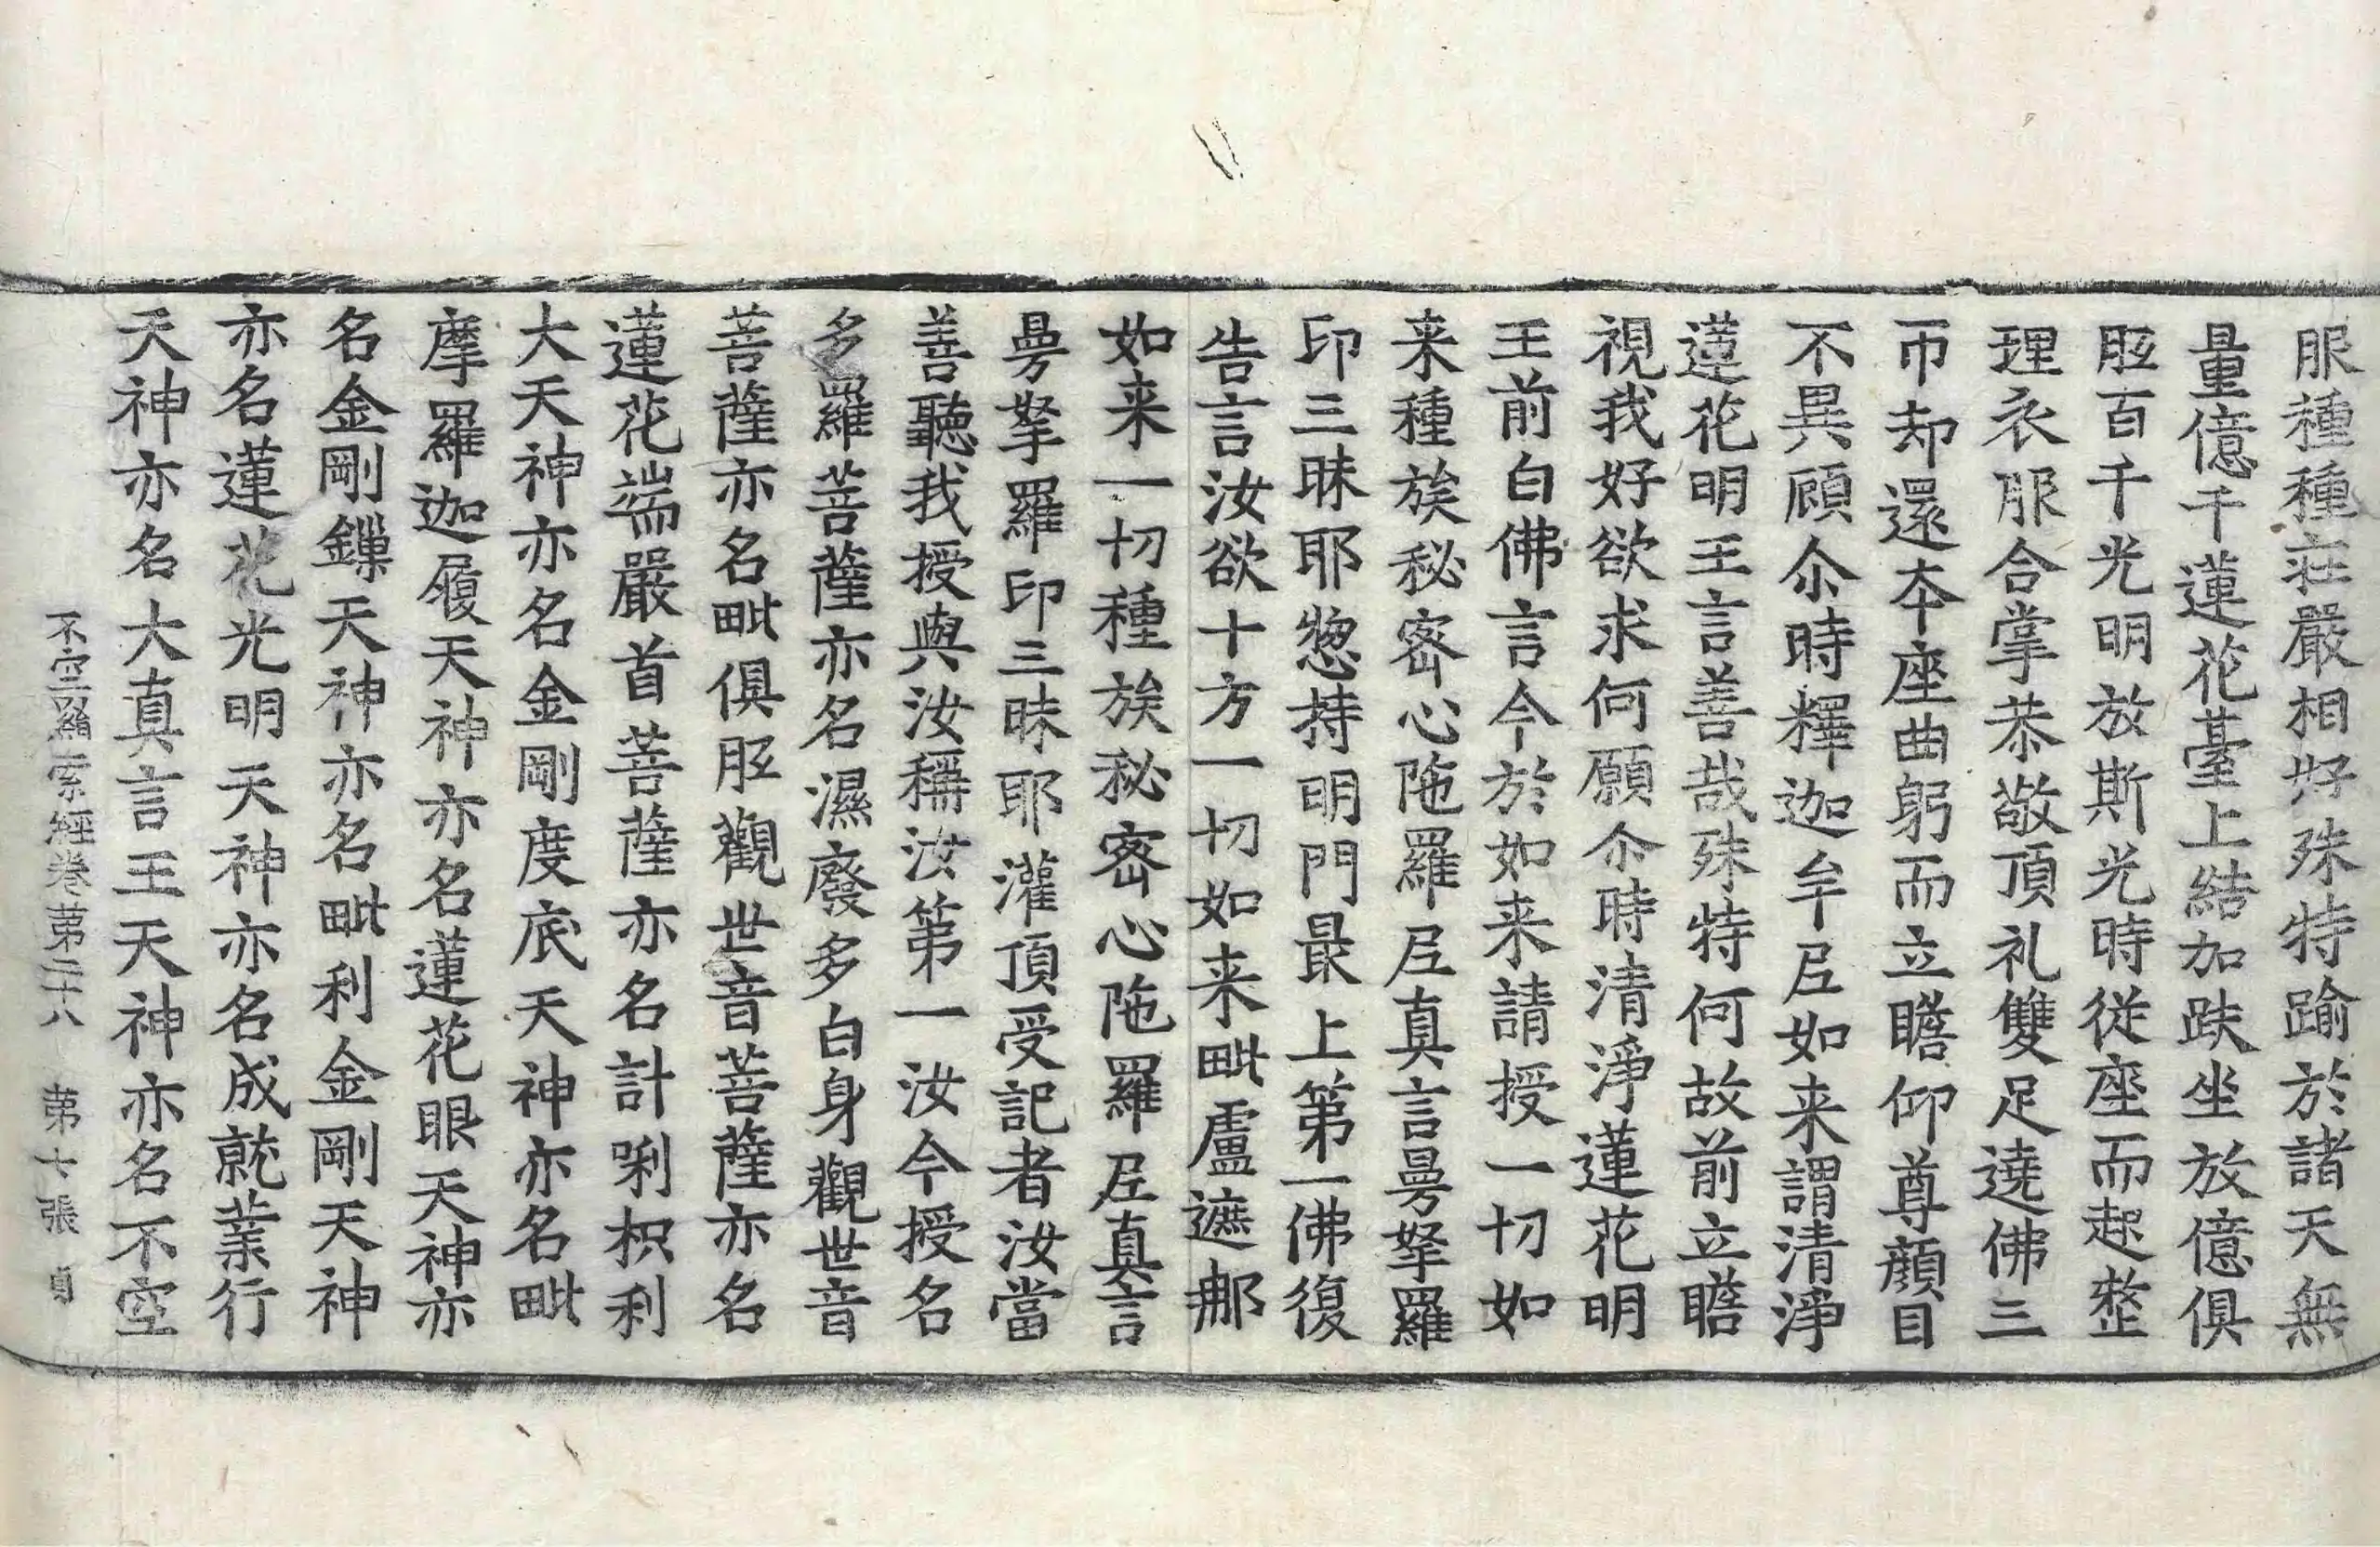 服種種莊嚴相好殊特踰於諸天無
量億千蓮花臺上結加趺坐放億俱
胝百千光明放斯光時從座而起整
理衣服合掌恭敬頂礼雙足遶佛三
帀却還本座曲躬而立瞻仰尊顔目
不異顧尒時釋迦牟尼如来謂清淨
蓮花明王言善哉殊特何故前立瞻
視我好欲求何願尒時清淨蓮花明
王前白佛言今於如来請授一切如
来種族秘密心陁羅尼真言曼拏羅
印三昧耶惣持明門最上第一佛復
告言汝欲十方一切如来毗盧遮那
如来一切種族秘密心陁羅尼真言
曼拏羅印三昧耶灌頂受記者汝當
善聽我授與汝稱汝第一汝今授名
多羅菩薩亦名濕廢多白身觀世音
菩薩亦名毗俱胝觀世音菩薩亦名
蓮花端嚴首菩薩亦名計唎枳利
大天神亦名金剛度底天神亦名毗
摩羅迦履天神亦名蓮花眼天神亦
名金剛鏁天神亦名毗利金剛天神
亦名蓮花光明天神亦名成就業行
天神亦名大真言王天神亦名不空
不空羂索經卷第二十八 第十張 貞